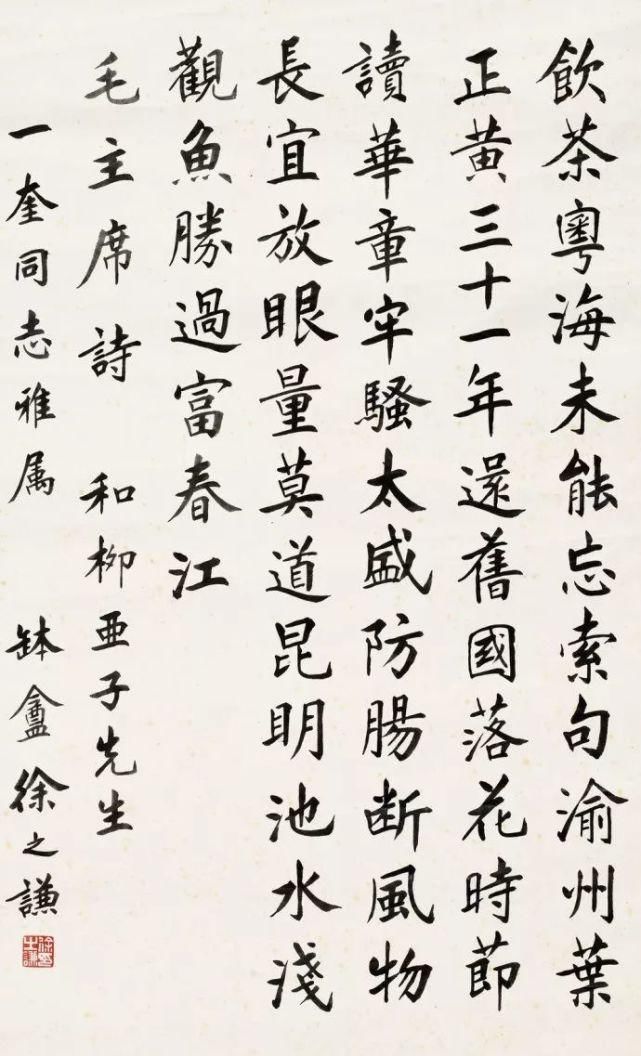 飲茶粵海未能忘索句渝州葉
正黃三十一年還舊國落花時節
讀華章牢騷太盛防腸斷風物
長宜放眼量莫道昆明池水淺
觀魚勝過富春江
毛主席詩 和柳亞子先生
一奎同志雅属 缽盦徐之謙
徐之謙印